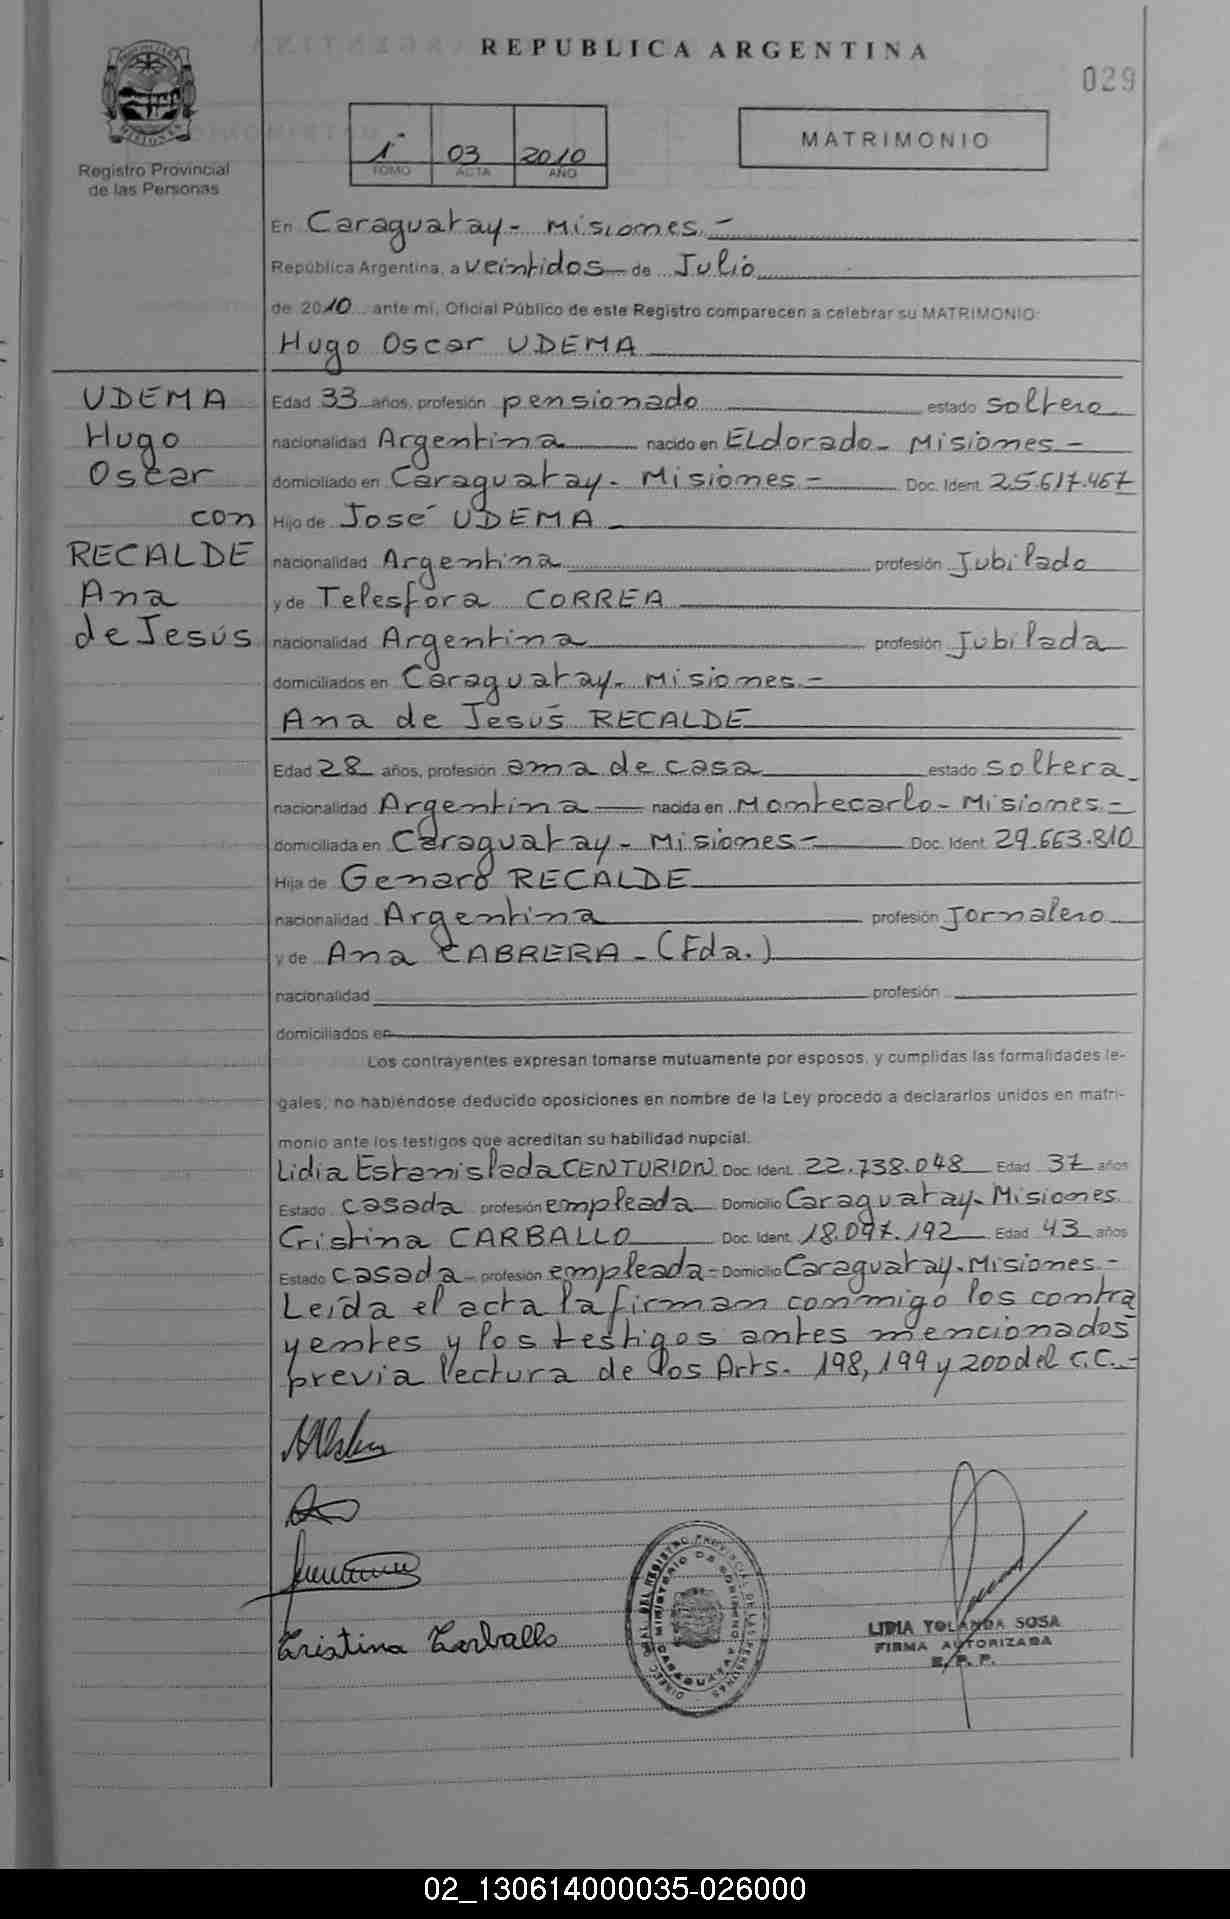 REPUBLICA ARGENTINA
029
Registro Provincial
de las Personas
1 03 2010
TOMO ACTA AÑO
MATRIMONIO
En Caraguatay - Misiones.-
República Argentina, a veintidos de Julio
de 2010 ante mi, Oficial Público de este Registro comparecen a celebrar su MATRIMONIO:
Hugo Oscar UDEMA
UDEMA
Hugo
Oscar
con
RECALDE
Ana
de Jesús
Edad 33 años, profesión pensionado estado soltero
nacionalidad Argentina nacido en ELdorado - Misiones -
domiciliado en Caraguatay - Misiones - Doc. Ident. 25.617.467
Hijo de José UDEMA
nacionalidad Argentina profesión Jubilado
y de Telesfora CORREA
nacionalidad Argentina profesión Jubilada
domiciliados en Caraguatay - Misiones.-
Ana de Jesús RECALDE
Edad 28 años, profesión ama de casa estado soltera
nacionalidad Argentina nacida en Montecarlo - Misiones -
domiciliada en Caraguatay - Misiones - Doc. Ident. 29.663.810
Hija de Genaro RECALDE
nacionalidad Argentina profesión Jornalero
y de Ana CABRERA - (Fda.)
nacionalidad profesión
domiciliados en
Los contrayentes expresan tomarse mutuamente por esposos, y cumplidas las formalidades le-
gales, no habiéndose deducido oposiciones en nombre de la Ley procedo a declararlos unidos en matri-
monio ante los testigos que acreditan su habilidad nupcial:
Lidia Estanislada CENTURION Doc. Ident. 22.738.048 Edad 37 años
Estado casada profesión empleada Domicilio Caraguatay - Misiones
Cristina CARBALLO Doc. Ident. 18.097.192 Edad 43 años
Estado casada - profesión empleada - Domicilio Caraguatay - Misiones -
Leída el acta la firman conmigo los contra
yentes y los testigos antes mencionados
previa lectura de los Arts. 198, 199 y 200 del C.C.-
Cristina Carballo
DIREC. GRAL. DEL REGISTRO PROVINCIAL DE LAS PERSONAS
MINISTERIO DE GOBIERNO
CARAGUATAY
LIDIA YOLANDA SOSA
FIRMA AUTORIZADA
R. P. P.
02_130614000035-026000